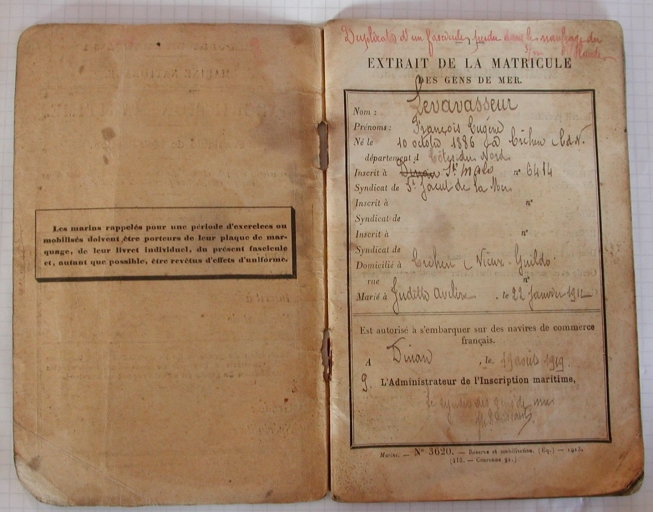 Les marins rappelés pour une période d'exercices ou
mobilisés doivent être porteurs de leur plaque de mar-
quage, de leur livret individuel, du présent fascicule
et, autant que possible, être revêtus d'effets d'uniforme.
Duplicata d'un fascicule perdu dans le naufrage du
EXTRAIT DE LA MATRICULE
DES GENS DE MER.
Nom : Levavasseur
Prénoms : François Eugène
Né le 10 octobre 1886 à Créhen C.d.N.
département d Côtes du Nord
Inscrit à Dinan St Malo n° 6414
Syndicat de St Jacut de la Mer
Inscrit à n°
Syndicat de
Inscrit à n°
Syndicat de
Domicilié à Créhen Vieux-Guildo
rue n°
Marié à Judith Aveline le 22 Janvier 1912
Est autorisé à s'embarquer sur des navires de commerce
français.
A Dinan, le 19 août 1919
L'Administrateur de l'Inscription maritime,
le syndic des gens de mer
Marine. — N° 3620. — Réserve et mobilisation. (Éq.) — 1915.